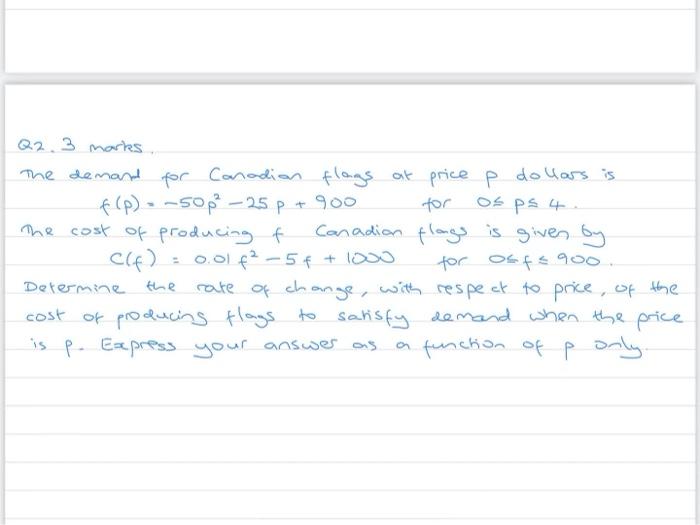 Q2. 3 marks.
The demand for Canadian flags at price p dollars is
f(p) = -50p² - 25p + 900 for 0≤ p≤ 4.
The cost of producing f Canadian flags is given by
C(f) = 0.01 f² - 5f + 1000 for 0≤f≤ 900.
Determine the rate of change, with respect to price, of the
cost of producing flags to satisfy demand when the price
is p. Express your answer as a function of p only.